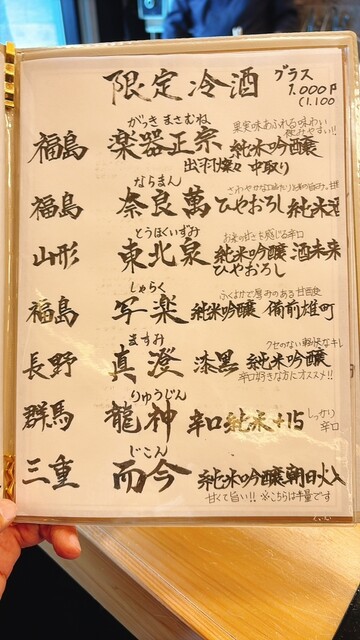 限定冷酒 グラス 1,000円
(1,100
がっき まさむね 果実味あふれる味わい
福島 楽器正宗 純米吟醸 飲みやすい!!
出羽燦々 中取り
ならまん
福島 奈良萬 ひやおろし 純米酒
とうほくいずみ お米の甘さを感じる辛口
山形 東北泉 純米吟醸 酒未来
ひやおろし
しゃらく ふくよかで厚みのある甘酒
福島 写楽 純米吟醸 備前雄町
ますみ クセのない軽快なキレ
長野 真澄 漆黒 純米吟醸
辛口好きな方にオススメ!!
りゅうじん
群馬 龍神 辛口純米+15 しっかり
辛口
じこん
三重 而今 純米吟醸朝日火入
甘くて旨い!! ※こちらは半量です